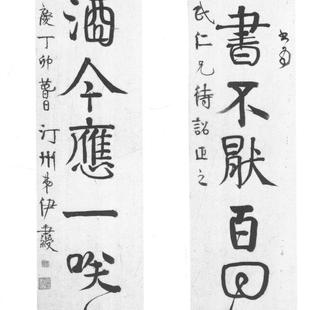 書不厭百回
仁兄待詔正之
酒今應一咲
慶丁卯
汀州弟伊秉綬